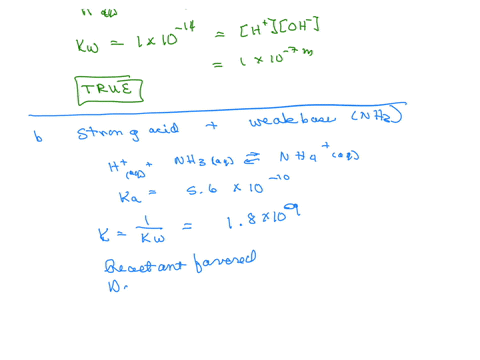 Kw = 1 x 10^-14 = [H+][OH-]
= 1 x 10^-7 m
TRUE
b Strong acid + weak base (NH3)
H+(aq) + NH3(aq) ⇌ NH4+(aq)
Ka = 5.6 x 10^-10
K = 1/Kw = 1.8 x 10^9
Reactant favored